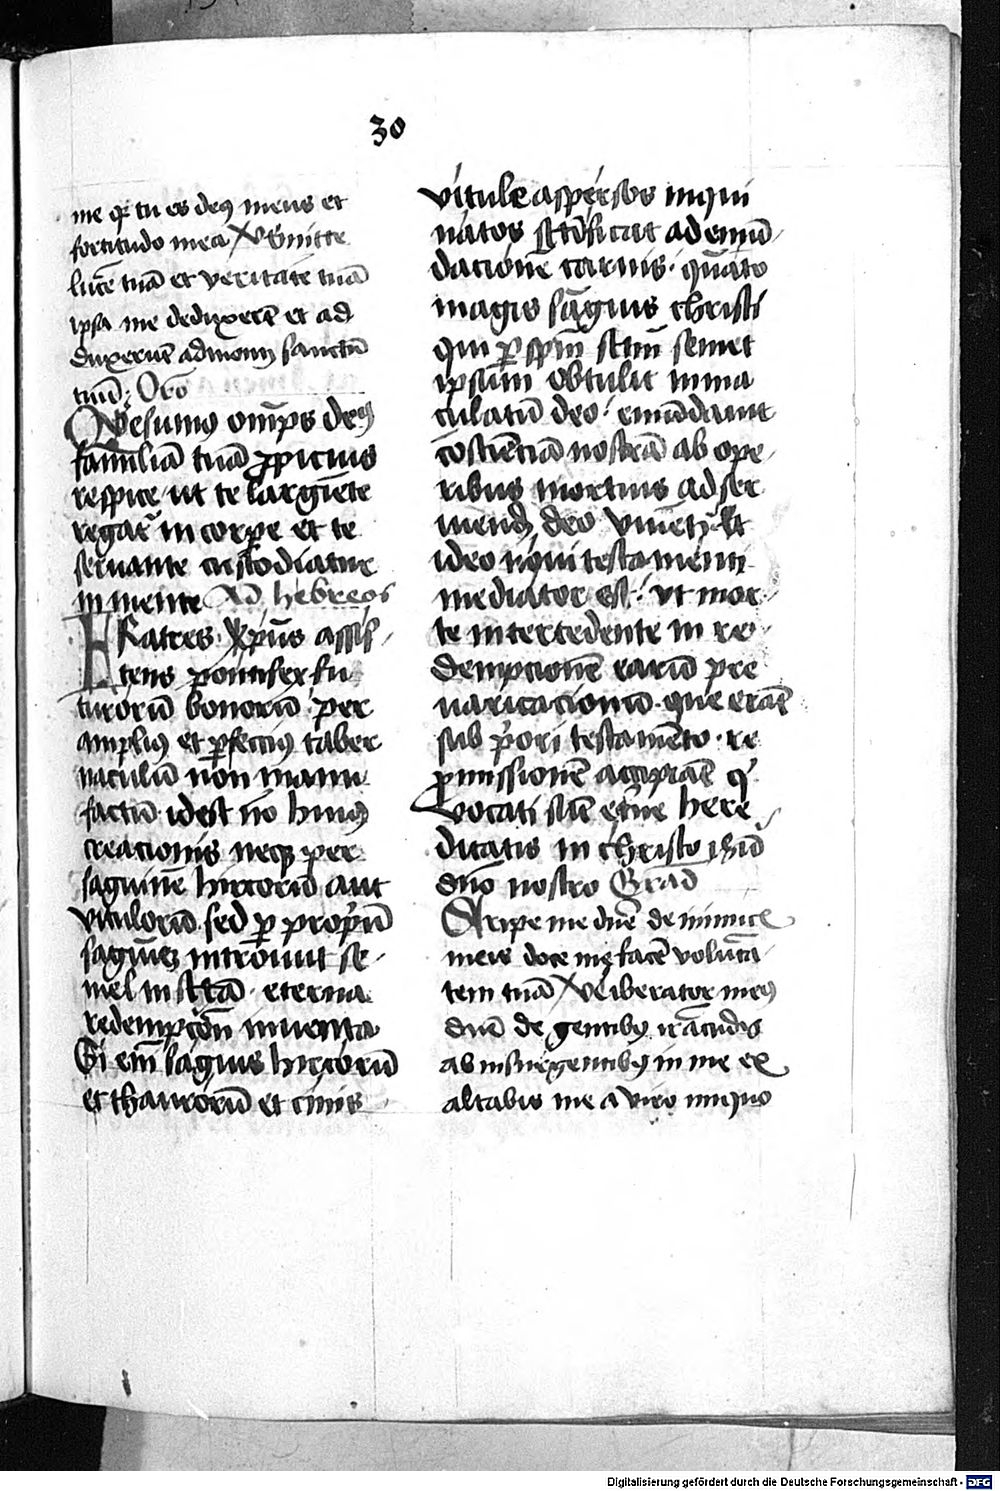 30
me qr tu es deꝰ meus et
fortitudo mea Vs Emitte
lucē tuā et veritatē tuā
ipsa me deduxerūt et ad
duxerūt ad montē sanctū
tuū: Oro
Quesumꝰ om̄ps deꝰ
familiā tuā ꝓpicius
respice ut te largiēte
regatˀ in corpe et te
seruante custodiatur
in mente Ad hebreos
Fratres Xp̄us assis-
tens pontifex fu
turorū bonorū per
ampliꝰ et ꝑfecciꝰ taber
naculū non manu
factū idest nō huiꝰ
creacionis neqꝫ per
saguinē hircorū aut
vitulorū sed ꝑ propriū
saguinē introiuit se-
mel in sctā eterna
redempcōn inuenta
Si em̄ saguis hircorū
et thaurorū et cinis
vitule aspersos inqui
natos sctificat ad emū-
dacionē carnis. quāto
magis sāguis christi
qui ꝑ spm̄ sctm̄ semet
ipsum obtulit inma
culatū deo. emūdauit
cōsciētiā nostrā ab ope-
ribus mortuis ad ser
uiendꝫ deo viuēti Et
ideo noui testamenti
mediator est. vt mor-
te intercedente in re-
dempcionē earū pre
uaricacionū que erāt
sub pˀori testamēto. re
ꝓmissionē accipiāt qˀ
vocati sūt etˀne here
ditatis in christo ihū
dn̄o nostro Grad
Eripe me dn̄e de inimicꝭ
meis doce me facē volūta
tem tuā Vs Liberator meꝰ
dn̄e de gentibꝰ iracūdis
ab insurgentibꝰ in me ex
altabis me a viro iniquo
Digitalisierung gefördert durch die Deutsche Forschungsgemeinschaft - DFG